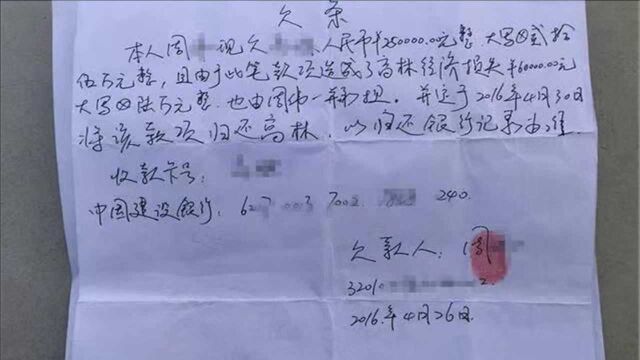 欠条
本人周 现欠 人民币¥250000.00元整 大写⊗贰拾
伍万元整,且由于此笔款项造成了高林经济损失¥60000.00元
大写⊗陆万元整.也由周伟一并承担.并定于2016年4月30日
将该款项归还高林.以归还银行记录为准.
收款卡号:
中国建设银行: 62 003 7002 240.
欠款人:周
3201 2.
2016.年4月26日.